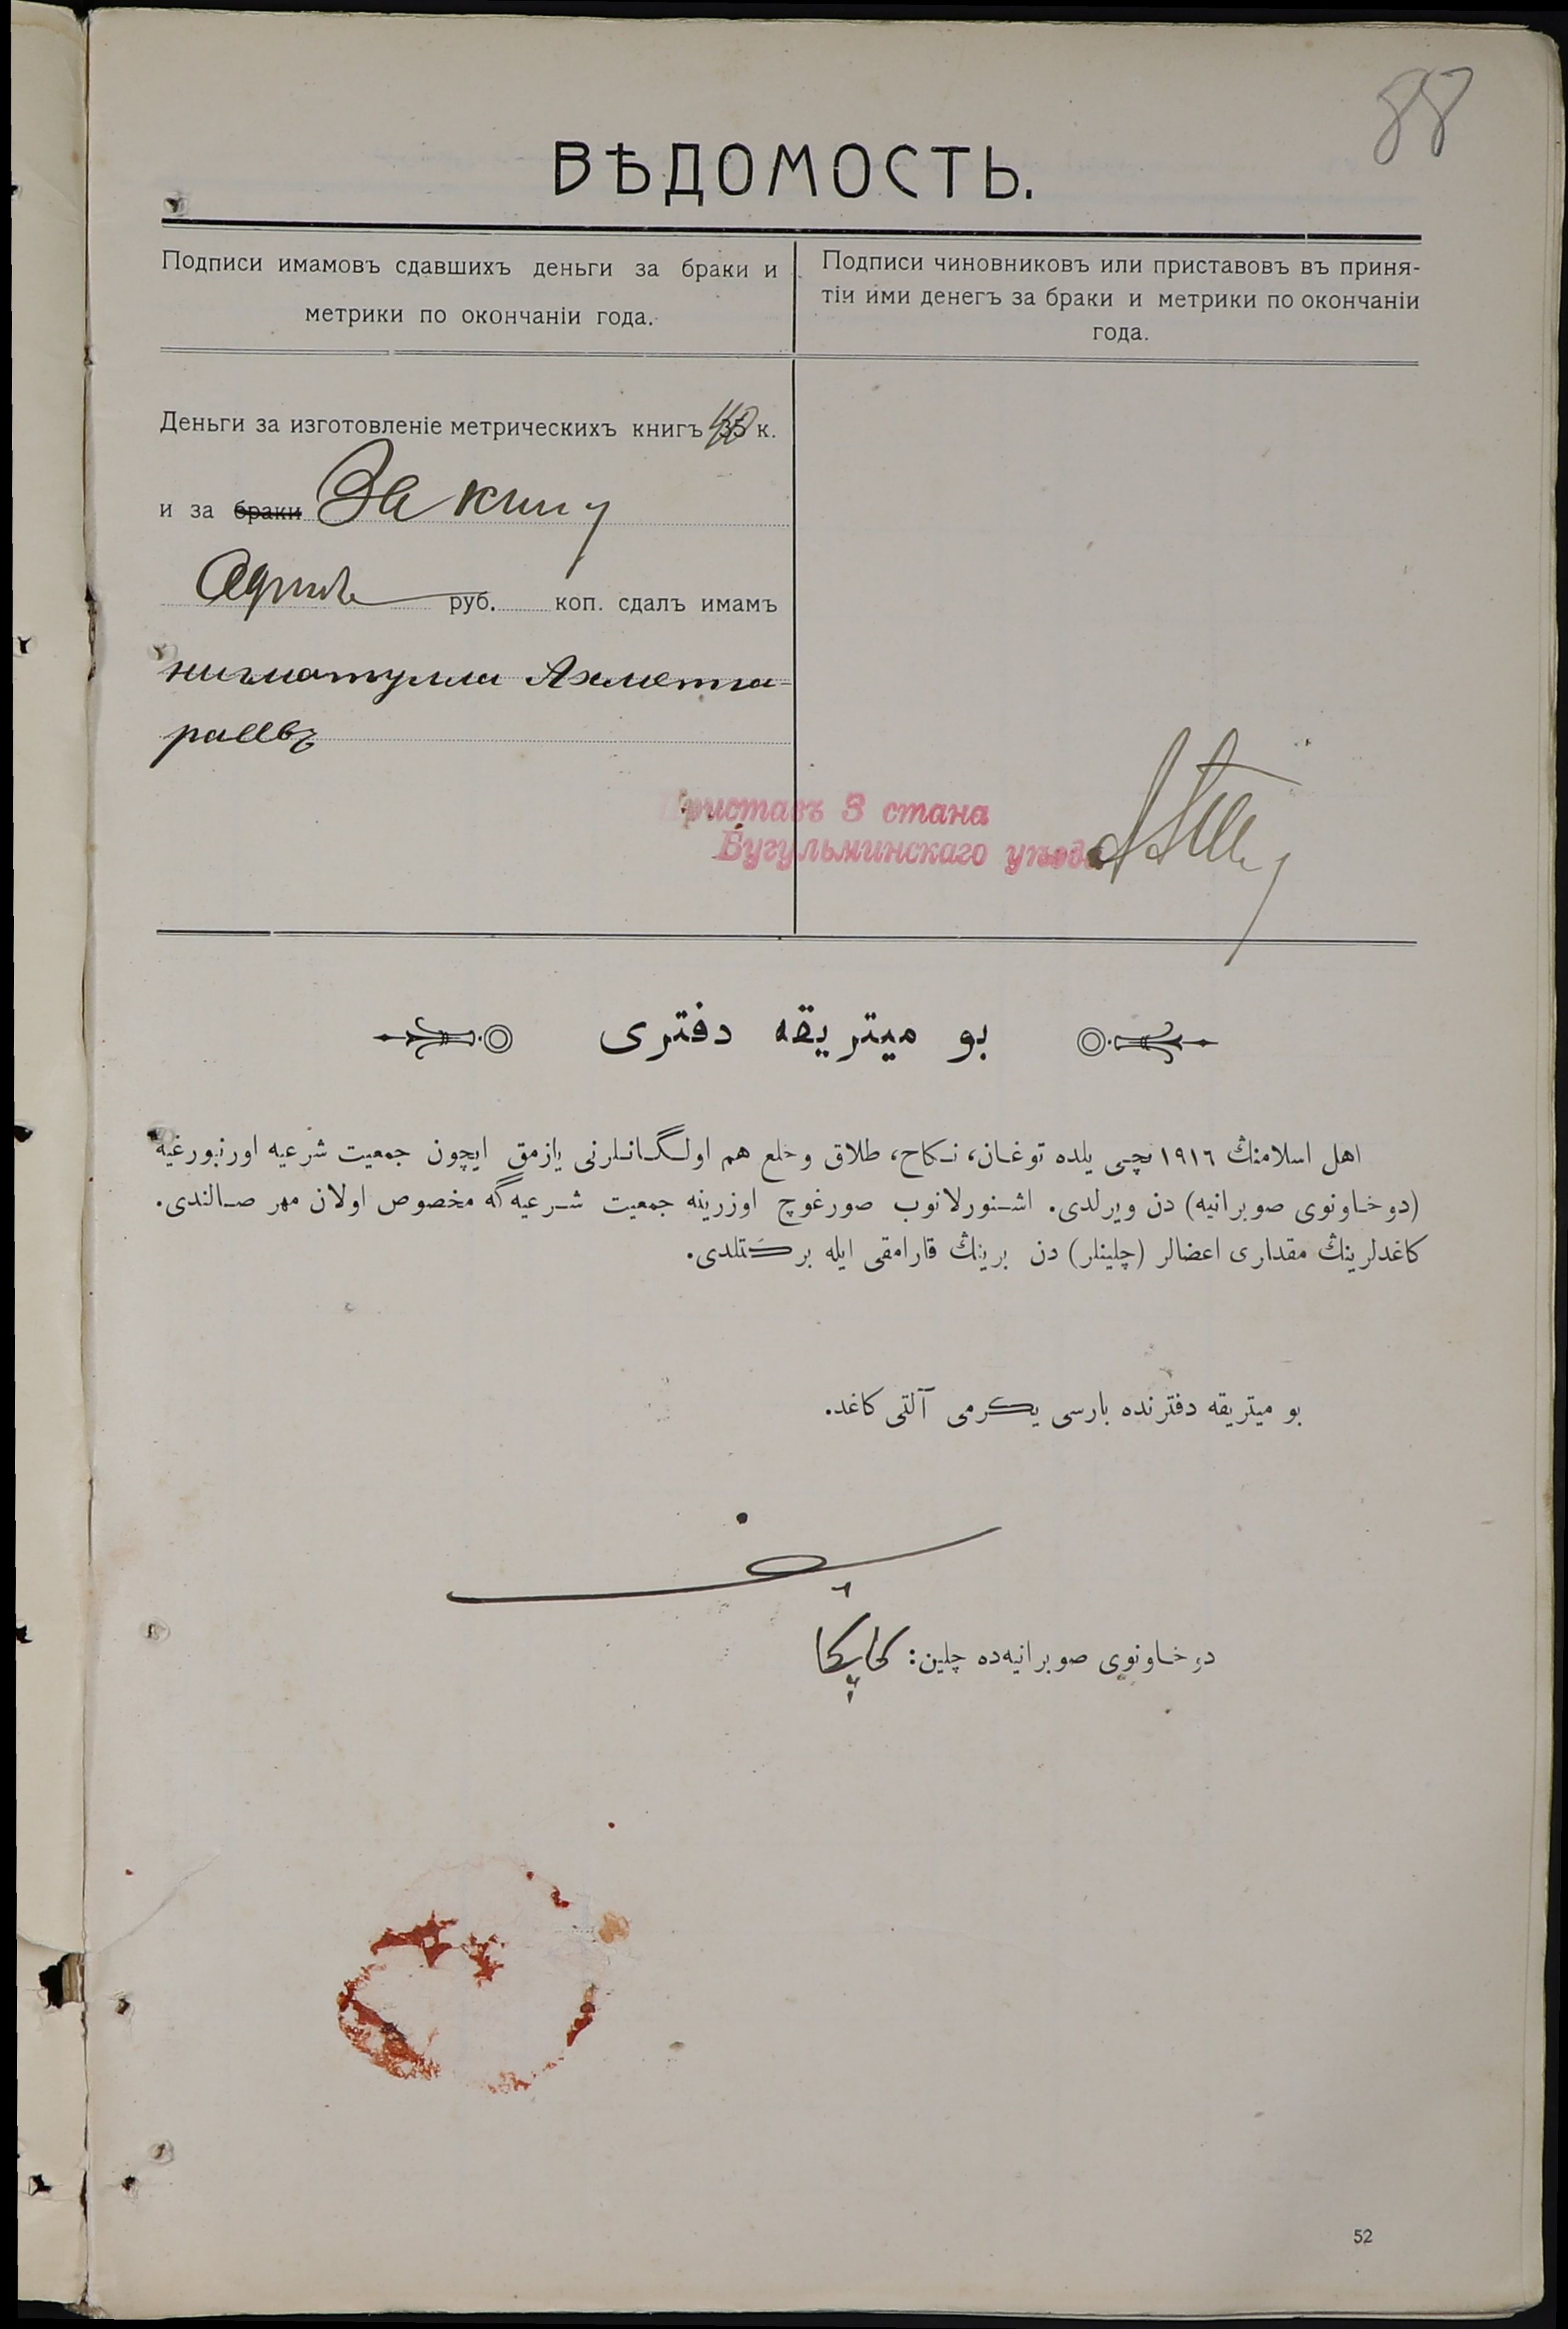 88
ВѢДОМОСТЬ.
Подписи имамовъ сдавшихъ деньги за браки и
метрики по окончаніи года.
Подписи чиновниковъ или приставовъ въ приня-
тіи ими денегъ за браки и метрики по окончаніи
года.
Деньги за изготовленіе метрическихъ книгъ 35 40 к.
и за браки За книгу
Одинъ руб. коп. сдалъ имамъ
нигматулла Ахметга-
раевъ
Приставъ 3 стана
Бугульминскаго уѣзда
بو ميتريقه دفترى
اهل اسلامنڭ ١٩١٦ نچى يلده توغان، نكاح، طلاق وخلع هم اولگانلرنى يازمق ايچون جمعيت شرعيه اورنبورغيه
(دوخاونوى صوبرانيه) دن ويرلدى. اشنورلانوب صورغوچ اوزرينه جمعيت شرعيه‌گه مخصوص اولان مهر صالندى.
كاغدلرينڭ مقدارى اعضالر (چلينلر) دن برينڭ قارامقى ايله بركتلدى.
بو ميتريقه دفترنده بارسى يكرمى آلتى كاغد.
دوخاونوى صوبرانيه‌ده چلين:
52